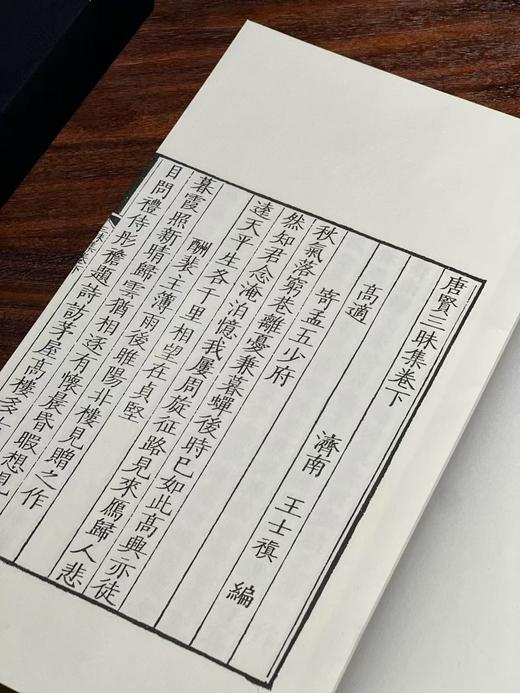 唐賢三昧集卷下
濟南 王士禛 編
高適
寄孟五少府
秋氣落窮巷離憂兼暮蟬後時已如此高興亦徒
然知君念淹泊憶我屢周旋征路見來鴈歸人悲
遠天平生各千里相望在貞堅
酬裴主薄雨後睢陽北樓見贈之作
暮霞照新晴歸雲猶相逐有懷晨昏暇想見
目問禮侍彤襜題詩訪茅屋高樓多